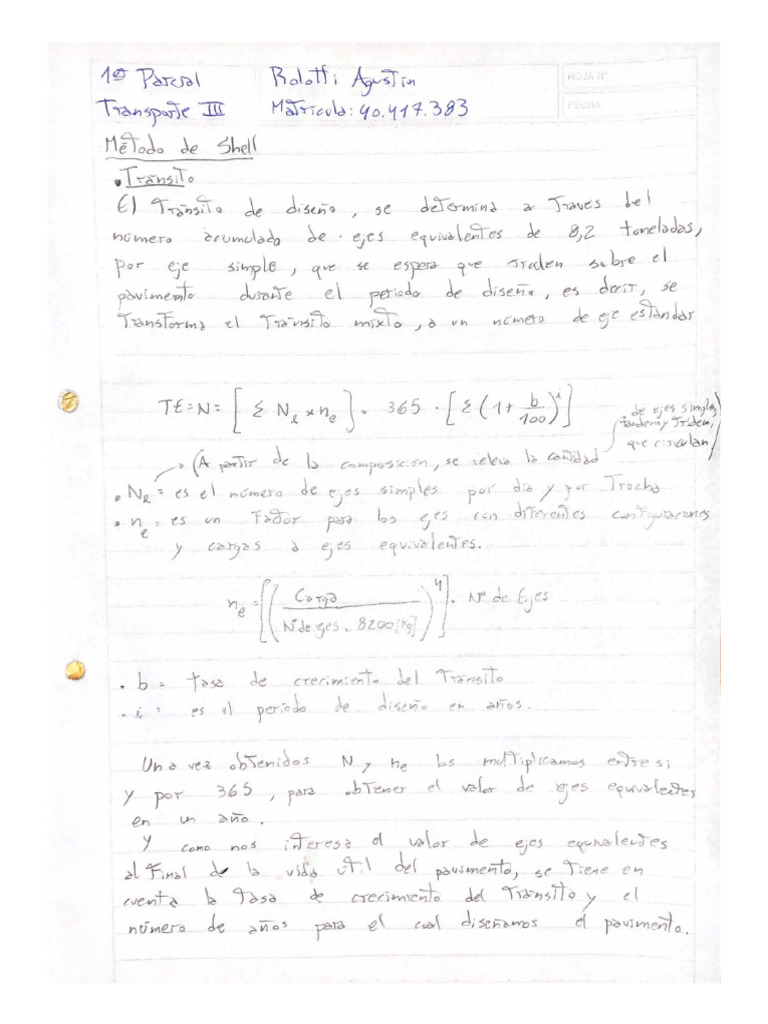 1er Parcial
Transporte III
Rolotti Agustin
Matrícula: 40.417.383
HOJA Nº
FECHA
Método de Shell
• Tránsito
El Tránsito de diseño, se determina a Traves del
número acumulado de ejes equivalentes de 8,2 toneladas,
por eje simple, que se espera que circulen sobre el
pavimento durante el periodo de diseño, es decir, se
Transforma el Tránsito mixto, a un número de eje estandar
TE=N= [Σ Nₑ × nₑ] . 365 . [Σ (1 + b/100)^i]
de ejes simples,
tandem y Tridem,
que circulan)
(A partir de la composición, se releva la cantidad
• Nₑ = es el número de ejes simples por día y por Trocha
• nₑ = es un Factor para los ejes con diferentes configuraciones
y cargas a ejes equivalentes.
nₑ = [(Carga / Nº de ejes . 8200 [kg])^4] . Nº de Ejes
• b = tasa de crecimiento del Tránsito
• i = es el período de diseño en años.
Una vez obtenidos N y ne los multiplicamos entre si
y por 365, para obtener el valor de ejes equivalentes
en un año.
Y como nos interesa el valor de ejes equivalentes
al Final de la vida útil del pavimento, se Tiene en
cuenta la Tasa de crecimiento del Tránsito y el
número de años para el cual diseñamos el pavimento.